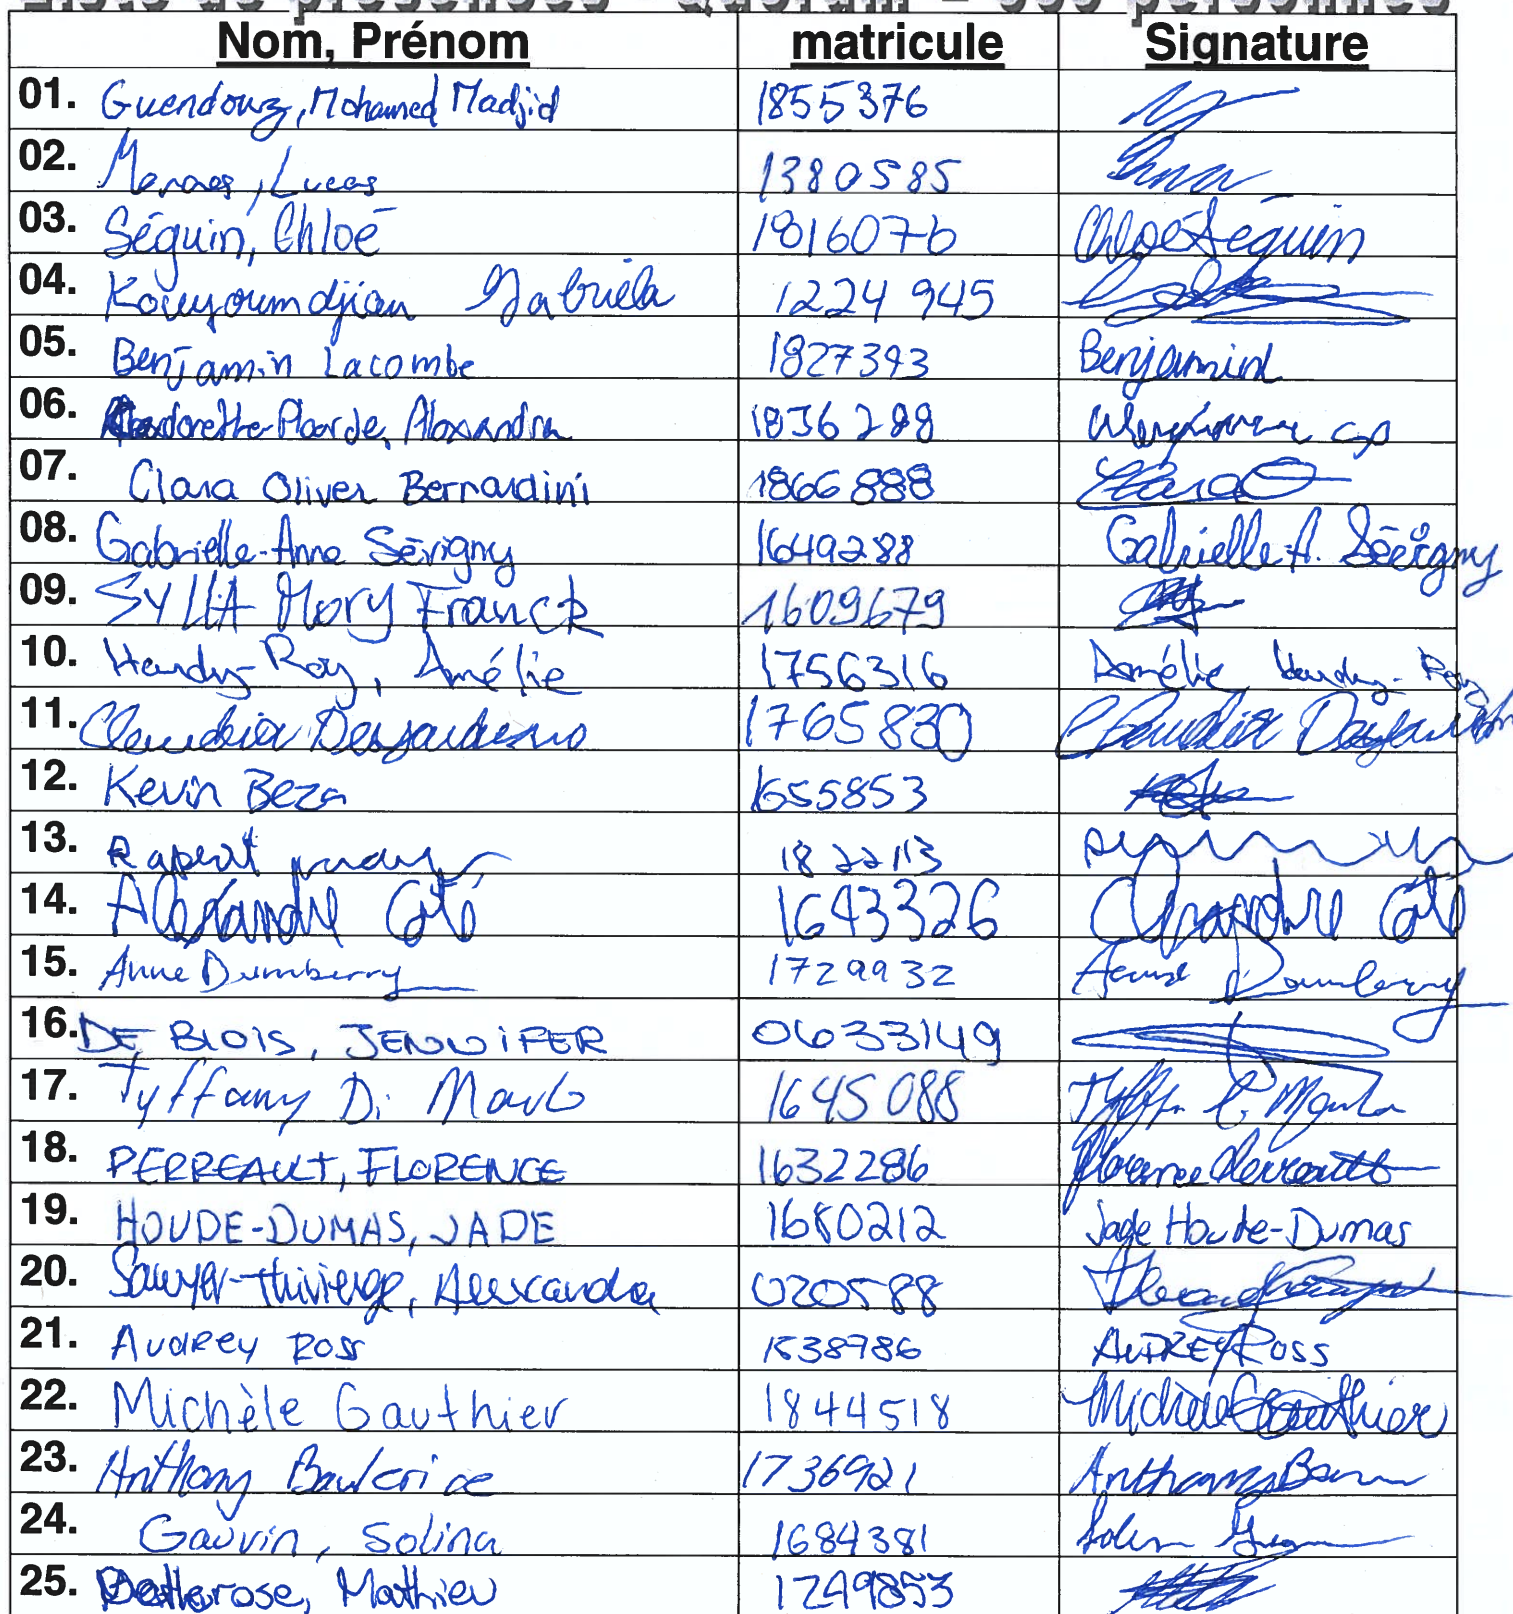 Liste de présences - Quorum - 300 personnes
Nom, Prénom matricule Signature
01. Guendouz, Mohamed Madjid 1855376
02. Moraes, Lucas 1380585
03. Séguin, Chloé 1816076 Chloé Séguin
04. Kouyoumdjian Gabriela 1224945
05. Benjamin Lacombe 1827393 Benjamin L
06. Plourde, Alexandra 1836288
07. Clara Oliver Bernardini 1866888 Clara
08. Gabrielle-Anne Sévigny 1649288 Gabrielle-A. Sévigny
09. SYLLA Mory Franck 1609679
10. Hardy-Roy, Amélie 1756316 Amélie Hardy-Roy
11. Claudia Desjardins 1765830 Claudia Desjardins
12. Kevin Beza 1655853
13. 1822113
14. Alexandre Côté 1643326 Alexandre Côté
15. Anne Dumberry 1729932 Anne Dumberry
16. DE BLOIS, JENNIFER 0633149
17. Tyffany Di 1645088
18. PERREAULT, FLORENCE 1632286 Florence Perreault
19. HOUDE-DUMAS, JADE 1680212 Jade Houde-Dumas
20. Sawyer-Thivierge, Alexandra 020588
21. Audrey Ross 1538786 AUDREY ROSS
22. Michèle Gauthier 1844518 Michèle Gauthier
23. Anthony 1736921 Anthony
24. Gauvin, Solina 1684381
25. Bellerose, Mathieu 1249853